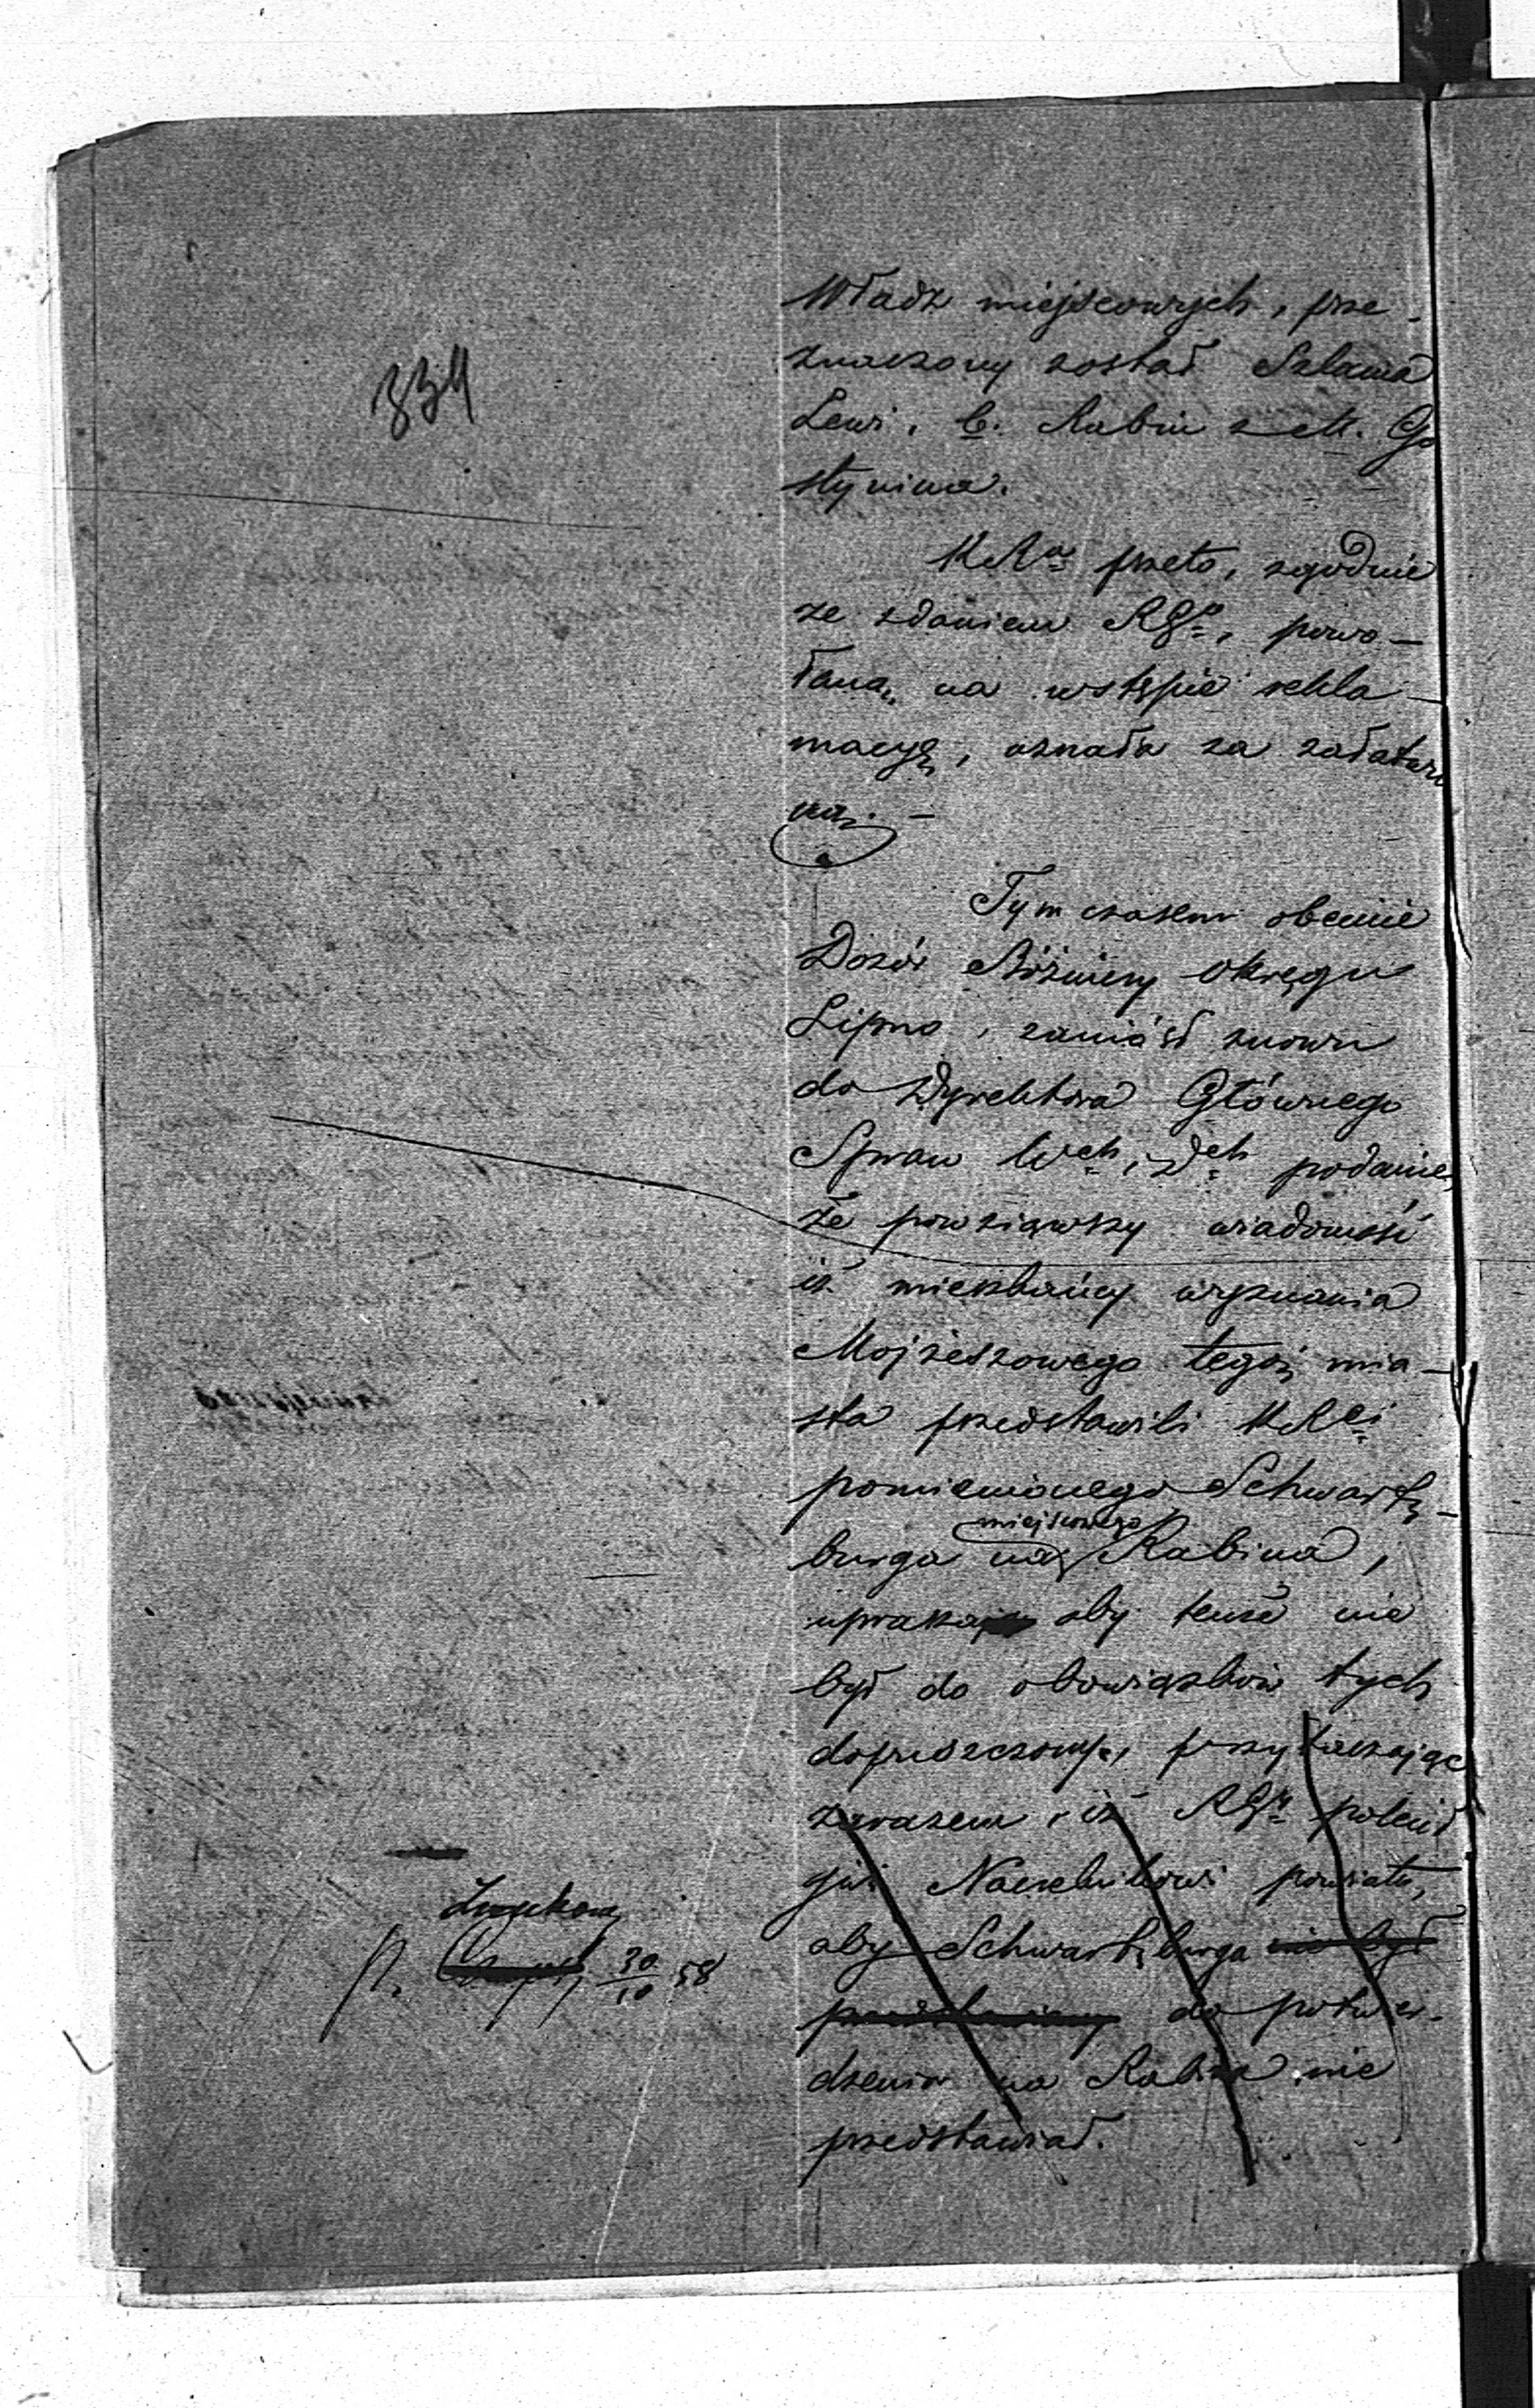 334
Władz miejscowych, prze-
znaczony został Szlama
Lewi, b. Rabin z M. Go
stynina.
KRa przeto, zgodnie
ze zdaniem RGo, powo-
łaną na wstępie rekla-
macyę, uznała za załatwio
ną. -
Tym czasem obecnie
Dozór Bóżniczy Okręgu
Lipno, zaniósł znowu
do Dyrektora Głównego
Spraw Wch, Dch podanie,
że powziąwszy wiadomość
iż mieszkańcy wyznania
Mojżeszowego tegoż mia-
sta przedstawili KRci
pomienionego Schwartz-
miejscowego
burga na Rabina,
uprasza aby tenże nie
był do obowiązków tych
dopuszczony, przytaczając
zarazem, iż RGn polecił
już Naczelnikowi powiatu,
aby Schwartzburga nie był
przedstawiony do potwier-
dzenia na Rabina nie
przedstawiał.
30/10 58